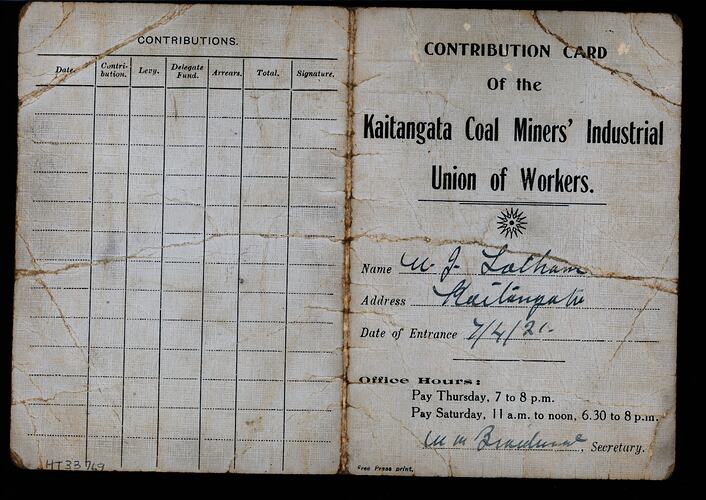 CONTRIBUTIONS.
Date. Contri-bution. Levy. Delegate Fund. Arrears. Total. Signature.
HT33769
CONTRIBUTION CARD
Of the
Kaitangata Coal Miners' Industrial
Union of Workers.
Name W. J. Latham
Address Kaitangata
Date of Entrance 7/4/21.
Office Hours:
Pay Thursday, 7 to 8 p.m.
Pay Saturday, 11 a.m. to noon, 6.30 to 8 p.m.
Secretary.
Free Press print.